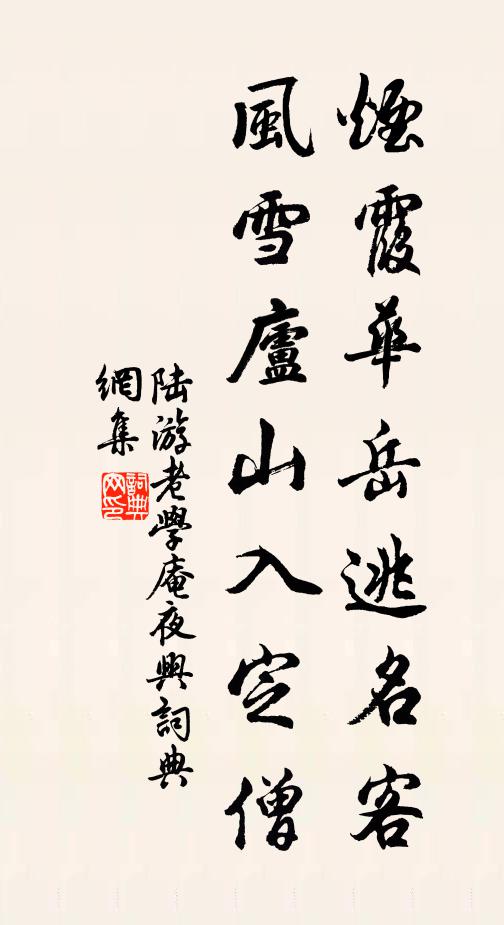 煙霞華岳逃名客
風雪廬山入定僧
陸游老學庵夜興詞典
網集
詞典
网印